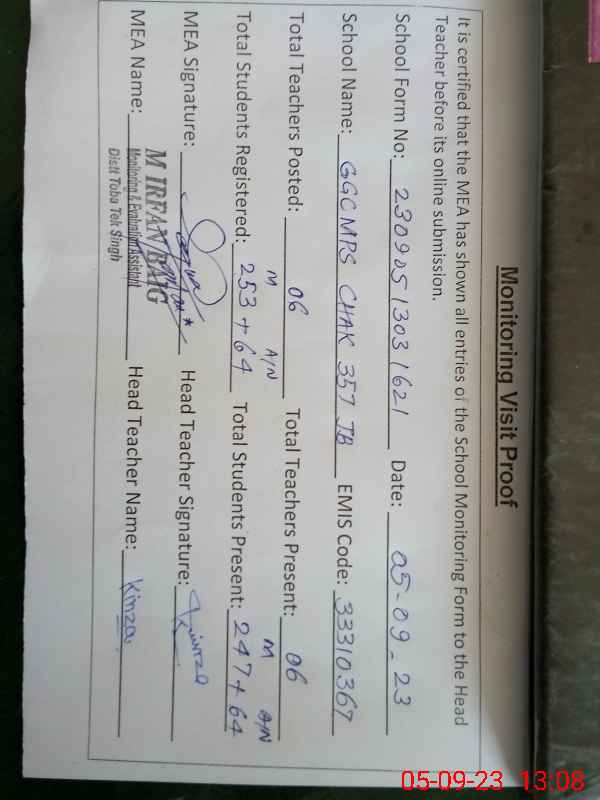 Monitoring Visit Proof
It is certified that the MEA has shown all entries of the School Monitoring Form to the Head
Teacher before its online submission.
School Form No: 2309051303 1621 Date: 05-09-23
School Name: GGCMPS CHAK 357 JB EMIS Code: 33310367
Total Teachers Posted: 06 Total Teachers Present: 06
M A/N M A/N
Total Students Registered: 253 + 64 Total Students Present: 247 + 64
MEA Signature: Head Teacher Signature: Kinza
M IRFAN BAIG
MEA Name: Monitoring & Evaluation Assistant Head Teacher Name: Kinza
Distt Toba Tek Singh
05-09-23 13:08